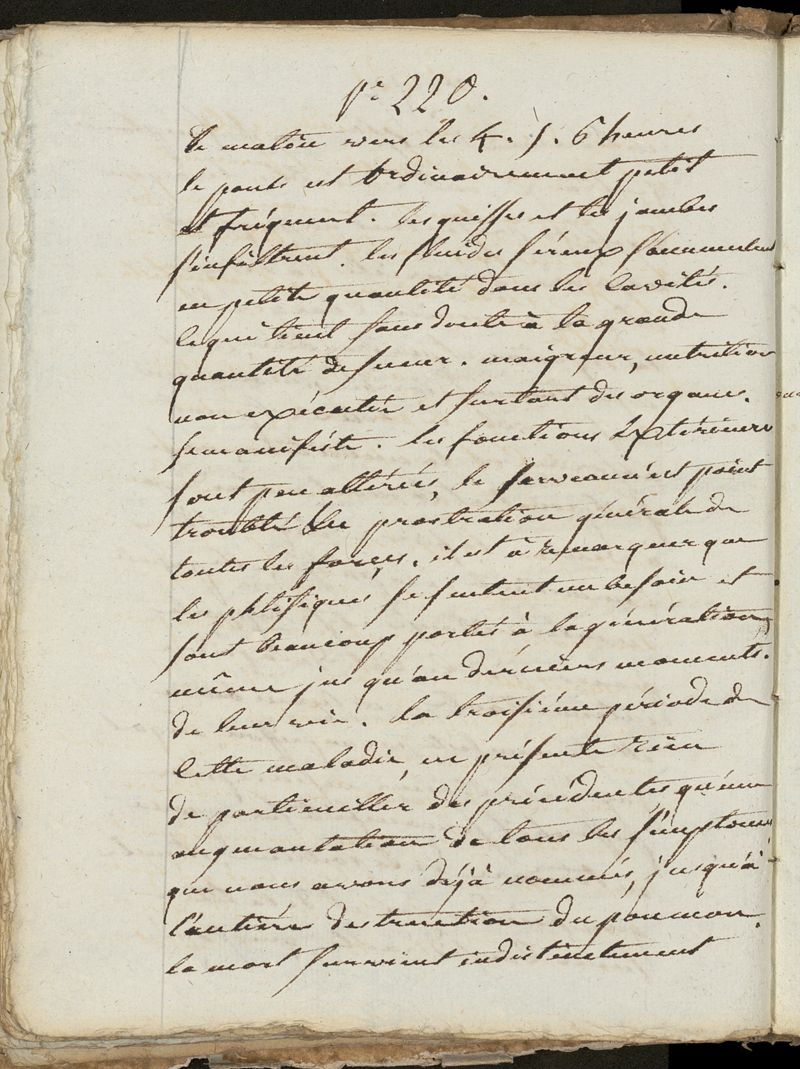 pe 220.
le matin vers les 4. 5. 6 heures
le pouls est ordinairement petit
et fréquent. les quisses et les jambes
s'infiltrent. les fluides séreux s'accumulent
en petite quantité dans les cavités.
ce qui tient sans doute à la grande
quantité de sueur. maigreur, nutrition
non exécutée et surtout des organes.
se manifeste. les fonctions extérieures
sont peu altérées, le serveau n'est point
troublé prostration générale de
toutes les forces. il est à remarquer que
les phtisiques se sentent un besoin et
sont beaucoup portés à la génération
même jusqu'au derniers moments.
de leur vie. la troisième période de
cette maladie, ne présente rien
de particuiller des précédentes qu'une
augmantation de tous les simptomes
que nous avons déjà nommés, jusqu'à
l'antière destruction du poumon.
la mort survient indistinctement